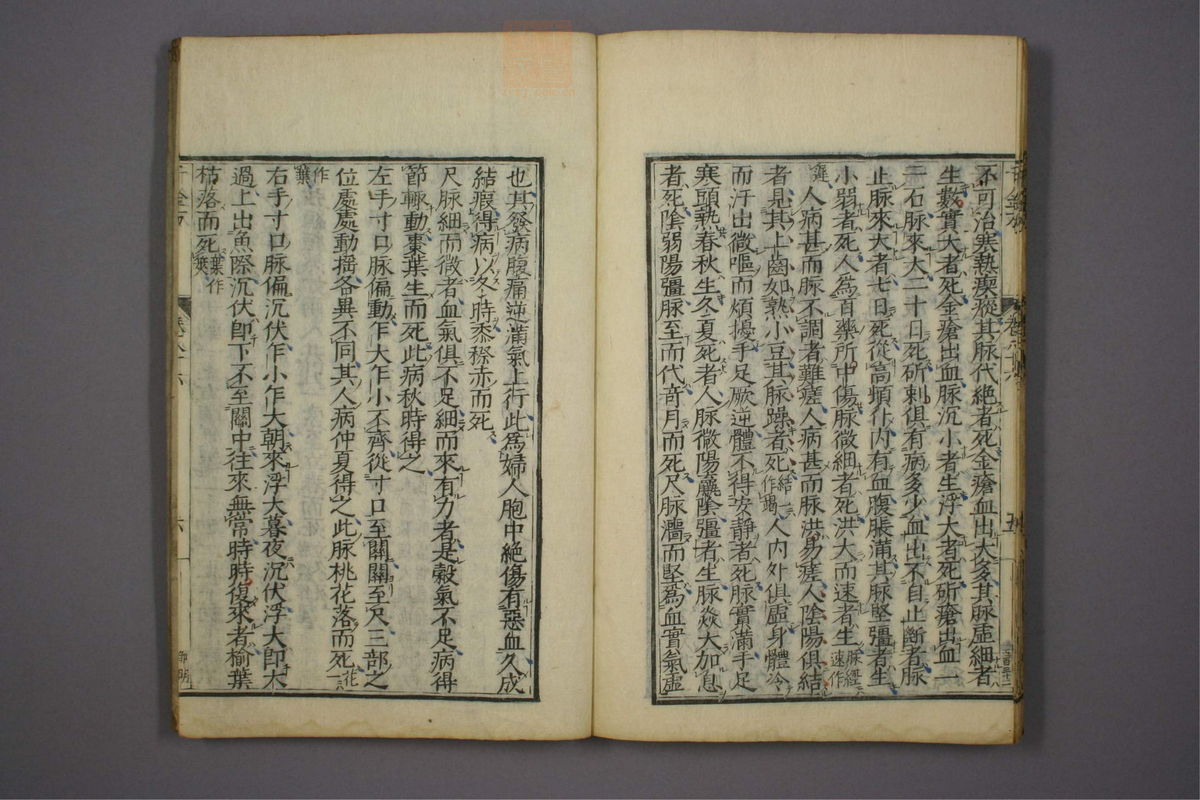 不可治寒熱瘈瘲其脉代絶者死金瘡血出大多其脉虛細者
生數實大者死金瘡出血脉沉小者生浮大者死斫瘡出血一
二石脉來大二十日死斫刺俱有病多少血出不自止斷者脉
止脉來大者七日死從高頓仆內有血腹脹滿其脉堅彊者生
小弱者死人爲百藥所中傷脉微細者死洪大而速者生脉經速作
遲人病甚而脉不調者難瘥人病甚而脉洪易瘥人陰陽俱結
者見其上齒如熟小豆其脉躁者死結一作竭人內外俱虛身體冷
而汗出微嘔而煩擾手足厥逆體不得安静者死脉實滿手足
寒頭熱春秋生冬夏死者人脉微陽羸陰彊者生脉焱大加息
者死陰弱陽彊脉至而代竒月而死尺脉濇而堅爲血實氣虛
五
也其發病腹痛逆滿氣上行此爲婦人胞中絶傷有惡血久成
結瘕得病以冬時黍穄赤而死
尺脉細而微者血氣俱不足細而來有力者是穀氣不足病得
節輙動棗葉生而死此病秋時得之
左手寸口脉偏動乍大乍小不齊從寸口至關關至尺三部之
位處處動揺各異不同其人病仲夏得之此脉桃花落而死花
作葉
右手寸口脉偏沉伏乍小乍大朝來浮大暮夜沉伏浮大即太
過上出魚際沉伏即下不至關中往來無常時時復來者榆葉
枯落而死葉作莢
千金方
六